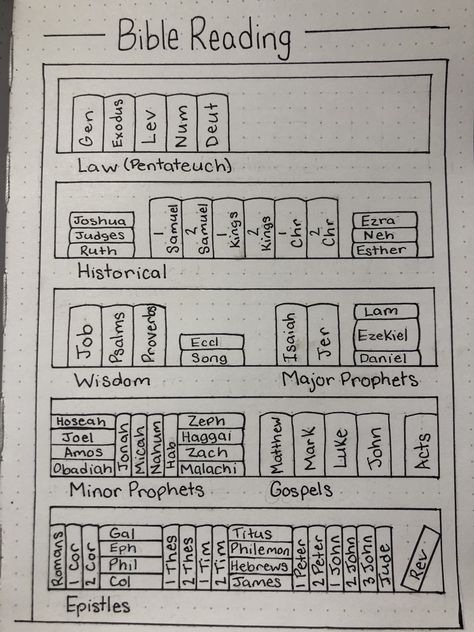 Bible Reading
Gen
Exodus
Lev
Num
Deut
Law (Pentateuch)
Joshua
Judges
Ruth
1 Samuel
2 Samuel
1 Kings
2 Kings
1 Chr
2 Chr
Ezra
Neh
Esther
Historical
Job
Psalms
Proverbs
Eccl
Song
Wisdom
Isaiah
Jer
Lam
EzeKiel
Daniel
Major Prophets
Hoseah
Joel
Amos
Obadiah
Jonah
Micah
Nahum
Hab
Zeph
Haggai
Zach
Malachi
Minor Prophets
Matthew
Mark
Luke
John
Gospels
Acts
Romans
1 Cor
2 Cor
Gal
Eph
Phil
Col
1 Thes
2 Thes
1 Tim
2 Tim
Titus
Philemon
Hebrews
James
1 Peter
2 Peter
1 John
2 John
3 John
Jude
Rev
Epistles